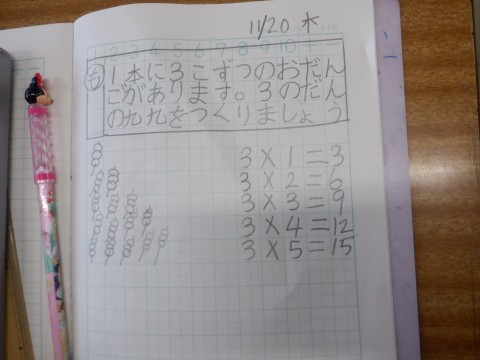 11/20 木
2 3 4 5 6 7 8 9 10 十 一
も 1本に3こずつのおだん
ごがあります。3のだん
の九九をつくりましょう
3×1=3
3×2=6
3×3=9
3×4=12
3×5=15